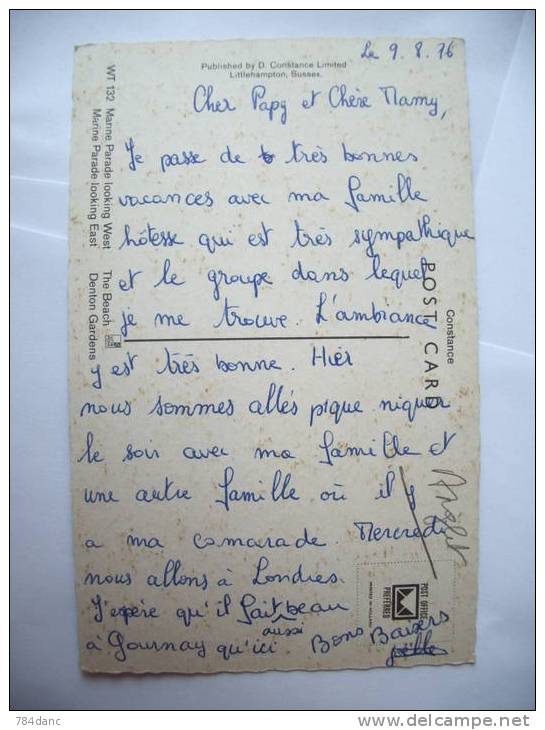 Le 9.8.76
Published by D. Constance Limited
Littlehampton, Sussex.
Cher Papy et Chère Mamy,
Je passe de très bonnes
vacances avec ma famille
hôtesse qui est très sympathique
et le groupe dans lequel
je me trouve. L'ambiance
y est très bonne. Hier
nous sommes allés pique niquer
le soir avec ma famille et
une autre famille où il y
a ma camarade. Mercredi
nous allons à Londres.
J'espère qu'il fait beau
aussi
à Gournay qu'ici Bons Baisers
Joëlle
WT 132 Marine Parade looking West The Beach
Marine Parade looking East Denton Gardens
Constance
POST CARD
POST OFFICE
PREFERRED
PRINTED IN HOLLAND
784danc
delcampe.net